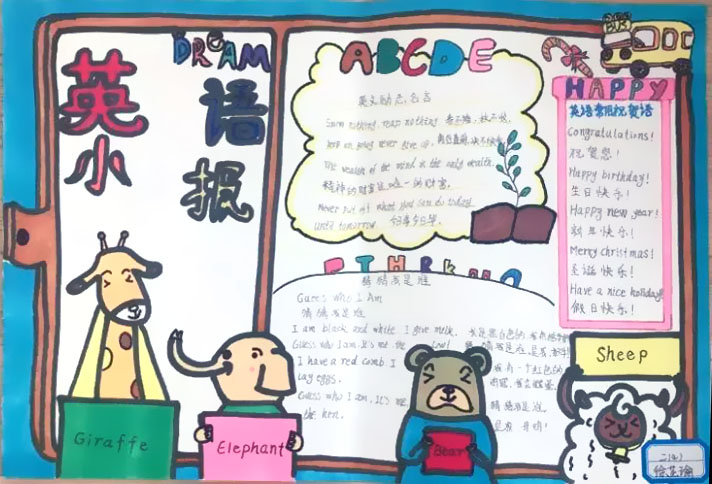 英语
小报
DREAM
ABCDE
英文励志名言
Sown nothing, reap nothing.
Keep on going never give up.
The wealth of the mind is the only wealth.
精神的财富是唯一的财富。
Never put off what you can do today
until tomorrow. 今日事今日毕。
猜猜我是谁
Guess Who I Am
猜猜我是谁
I am black and white. I give milk.
Guess who I am. It's me. the cow!
I have a red comb. I
lay eggs.
Guess who I am. It's me.
the hen.
BUS
HAPPY
英语常用祝贺语
Congratulations!
祝贺您!
Happy birthday!
生日快乐!
Happy new year!
新年快乐!
Merry christmas!
圣诞快乐!
Have a nice holiday!
假日快乐!
Giraffe
Elephant
Bear
Sheep